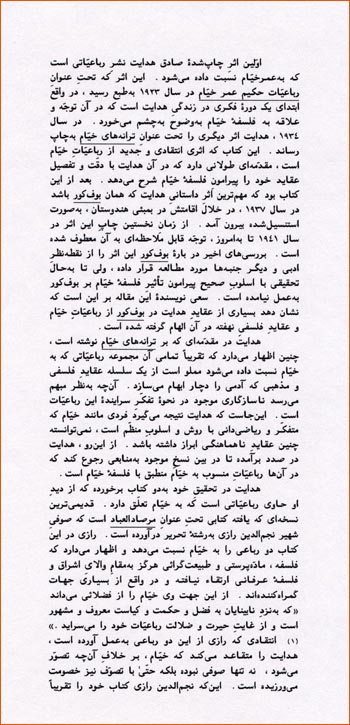 اوّلین اثر چاپ‌شدهٔ صادق هدایت نشر رباعیّاتی است
که به‌عمرخیّام نسبت داده می‌شود . این اثر که تحت عنوانِ
رباعیّات حکیم عمر خیّام در سال ۱۹۲۳ به‌طبع رسید ، در واقع
ابتدای یک دورهٔ فکری در زندگی هدایت است که در آن توجّه و
علاقه به فلسفهٔ خیّام به‌وضوح به‌چشم می‌خورد . در سال
۱۹۳۴ ، هدایت اثر دیگری را تحت عنوان ترانه‌های خیّام به‌چاپ
رساند . این کتاب که اثری انتقادی و جدید از رباعیّاتِ خیّام
است ، مقدّمه‌ای طولانی دارد که در آن هدایت با دقّت و تفصیل
عقاید خود را پیرامون فلسفهٔ خیّام شرح می‌دهد . بعد از این
کتاب بود که مهم‌ترین اثر داستانی هدایت که همان بوف‌کور باشد
در سال ۱۹۳۷ ، در خلال اقامتش در بمبئی هندوستان ، به‌صورت
استنسیل‌شده بیرون آمد . از زمان نخستین چاپِ این اثر در
سال ۱۹۴۱ تا به‌امروز ، توجّه قابل ملاحظه‌ای به آن معطوف شده
است . بررسی‌های اخیر در بارهٔ بوف‌کور این اثر را از نقطه‌نظر
ادبی و دیگر جنبه‌ها مورد مطالعه قرار داده ، ولی تا به‌حال
تحقیقی با اسلوبِ صحیح پیرامون تأثیرِ فلسفهٔ خیّام بر بوف‌کور
به‌عمل نیامده است . سعی نویسندهٔ این مقاله بر این است که
نشان دهد بسیاری از عقاید هدایت در بوف‌کور از رباعیّاتِ خیّام
و عقایدِ فلسفی نهفته در آن الهام گرفته شده است .
هدایت در مقدّمه‌ای که بر ترانه‌های خیّام نوشته است ،
چنین اظهار می‌دارد که تقریباً تمامی آن مجموعه رباعیّاتی که به
خیّام نسبت داده می‌شود مملو است از یک سلسله عقایدِ فلسفی
و مذهبی که آدمی را دچار ابهام می‌سازد . آن‌چه به‌نظر مبهم
می‌رسد ناسازگاری موجود در نحوهٔ تفکّر سرایندهٔ این رباعیّات
است . این‌جاست که هدایت نتیجه می‌گیرد فردی مانند خیّام که
متفکّر و ریاضی‌دانی با روش و اسلوبِ منظّم است ، نمی‌توانسته
چنین عقایدِ ناهماهنگی ابراز داشته باشد . از این‌رو ، هدایت
در صدد برآمده تا در بین نسخ موجود به‌منابعی رجوع کند که
در آن‌ها رباعیّاتِ منسوب به خیّام منطبق با فلسفهٔ خیّام است .
هدایت در تحقیق خود به‌دو کتاب برخورده که از دیدِ
او حاوی رباعیّاتی است که به خیّام تعلّق دارد . قدیمی‌ترین
نسخه‌ای که یافته کتابی تحتِ عنوانِ مرصادالعباد است که صوفی
شهیر نجم‌الدین رازی به‌رشتهٔ تحریر درآورده است . رازی در این
کتاب دو رباعی را به خیّام نسبت می‌دهد و اظهار می‌دارد که
فلسفه ، مادّه‌پرستی و طبیعت‌گرائی هرگز به‌مقامِ والای اشراق و
فلسفهٔ عرفانی ارتقاء نیافته و در واقع از بسیاری جهات
گمراه‌کننده‌اند . از این جهت وی خیّام را از فضلائی می‌داند
«که به‌نزدِ نابینایان به فضل و حکمت و کیاست معروف و مشهور
است و از غایتِ حیرت و ضلالت رباعیّات خود را می‌سراید .»
(۱) انتقادی که رازی از این دو رباعی به‌عمل آورده است ،
هدایت را متقاعد می‌کند که خیّام ، بر خلافِ آن‌چه تصوّر
می‌شود ، نه تنها صوفی نبوده بلکه حتّیٰ با تصوّف نیز خصومت
می‌ورزیده است . این‌که نجم‌الدین رازی کتاب خود را تقریباً